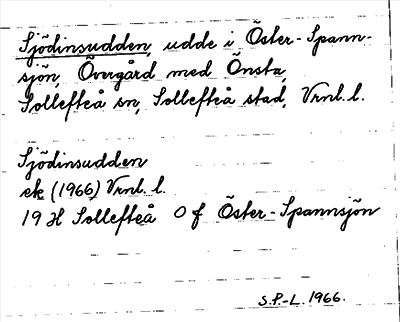 Sjödinsudden, udde i Öster-Spann-
sjön, Övergård med Önsta,
Sollefteå sn, Sollefteå stad, Vrnl. l.
Sjödinsudden
ek (1966) Vrnl. l.
19 H Sollefteå O f Öster-Spannsjön
S.P.-L. 1966.